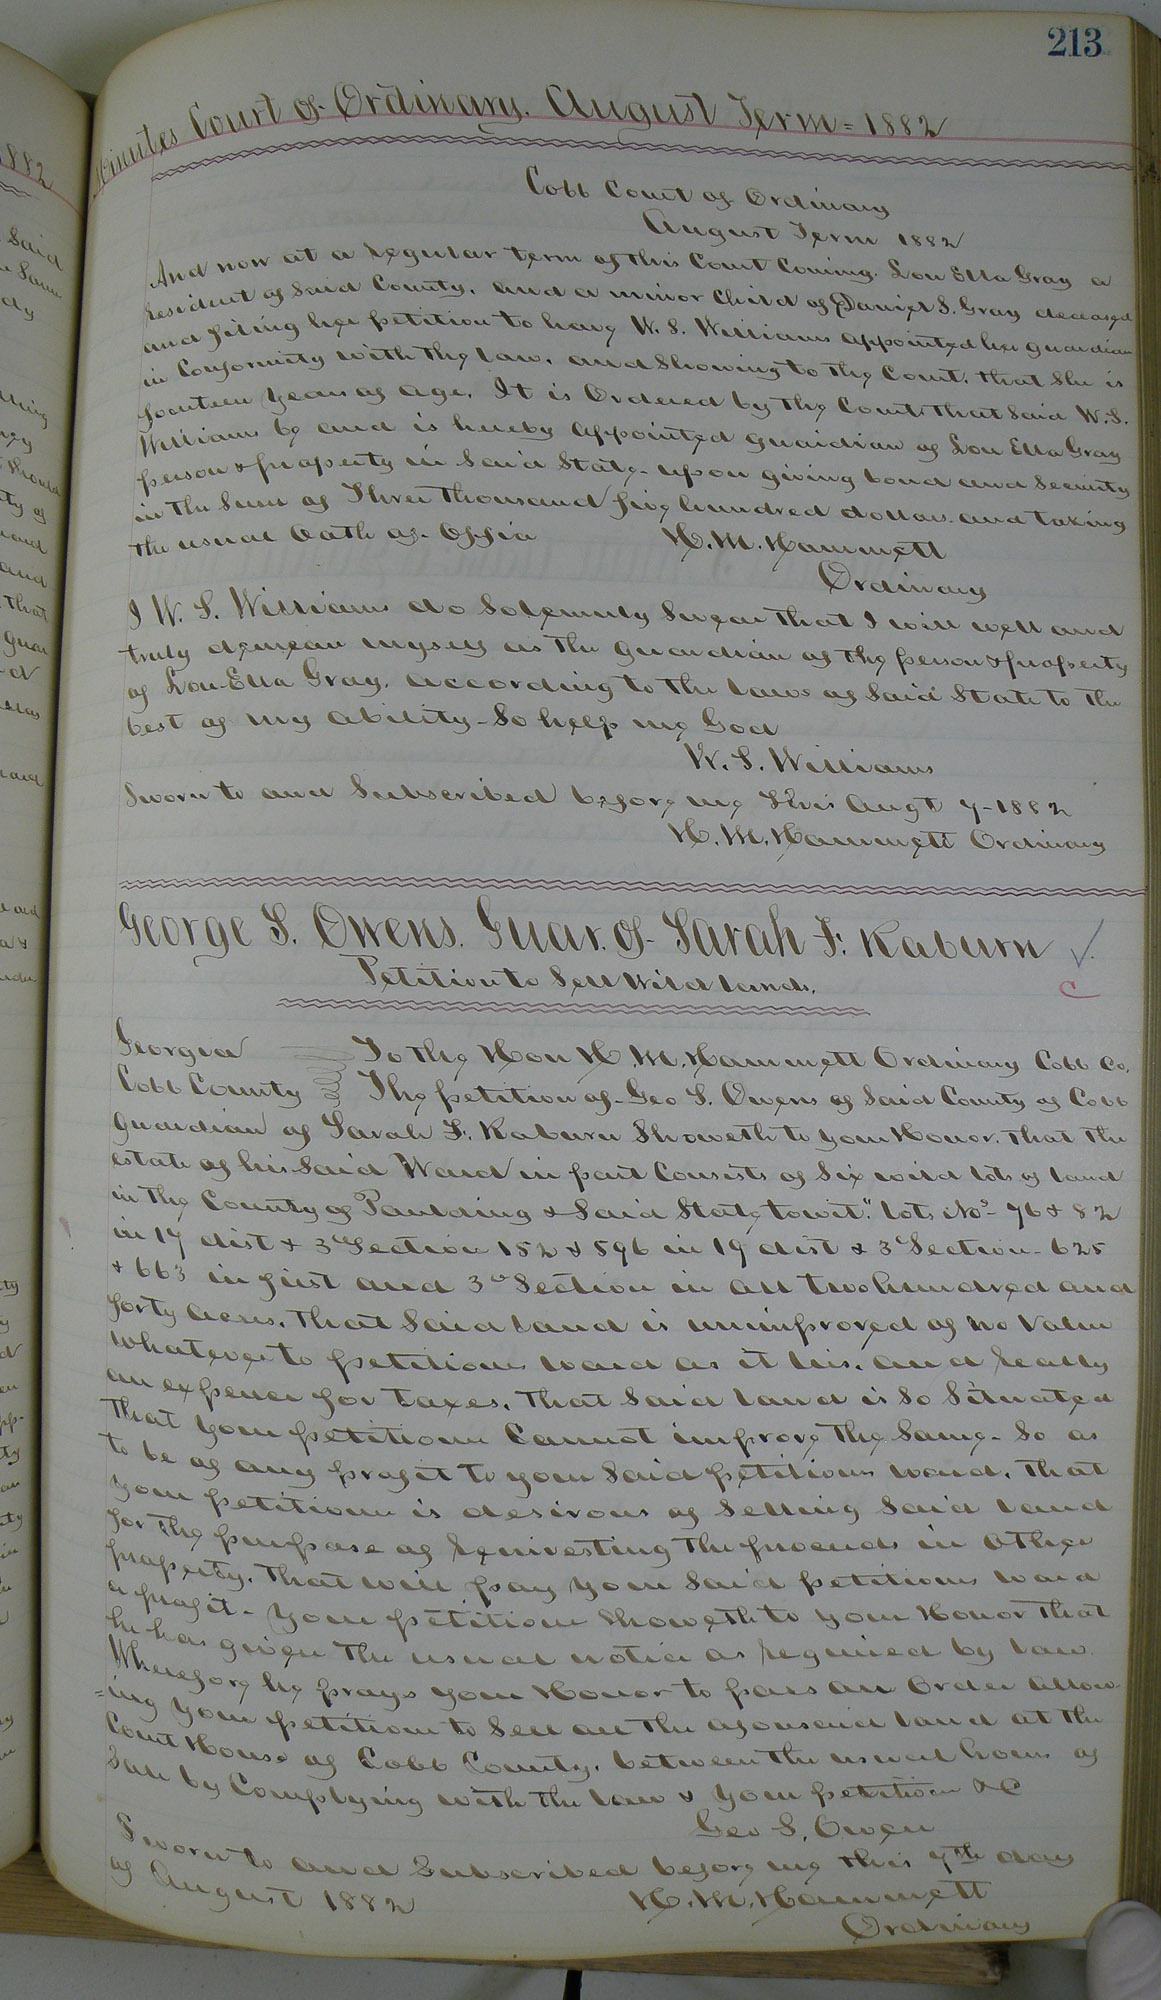 213
Minutes Court of Ordinary. August Term = 1882
Cobb Court of Ordinary
August Term 1882
And now at a regular term of this Court Coming. Lou Ella Gray a
resident of Said County. and a minor Child of Daniel S. Gray deceased
and filing her petition to have W. S. Williams appointed her guardian
in Conformity with the law. and Showing to the Court. that She is
fourteen years of age. It is Ordered by the Court that Said W. S.
Williams be and is hereby appointed guardian of Lou Ella Gray
person & property in Said State - upon giving bond and Security
in the Sum of Three thousand five hundred dollars. and taking
the usual Oath of - Office H. M. Hammett
Ordinary
I W. S. Williams do Solemnly Swear that I will well and
truly demean myself as the guardian of the person & property
of Lou-Ella Gray. according to the laws of Said State to the
best of my ability - So help me God
W. S. Williams
Sworn to and Subscribed before me this Augt 7 - 1882
H. M. Hammett Ordinary
George S. Owens. Guar. of - Sarah F. Raburn
Petition to Sell Wild lands.
Georgia To the Hon H. M. Hammett Ordinary Cobb Co.
Cobb County The petition of - Geo S. Owens of Said County of Cobb
guardian of Sarah F. Raburn Showeth to your Honor. that the
estate of his Said Ward in part Consists of Six wild lots of land
in the County of Paulding & Said State towit." lots Nos - 76 & 82
in 19 dist & 3d Section 152 & 596 in 19 dist & 3d Section - 625
& 663 in first and 3d Section in all two hundred and
forty acres. that Said land is unimproved of no Value
whatever to petitions ward as it lies. and really
an expence for taxes. that Said land is So Situated
that your petitioner Cannot improve the Same - So as
to be of any profit to your Said petitioners ward. that
your petitioner is desirous of Selling Said land
for the purpose of reinvesting the proceeds in other
property. that will pay your Said petitions ward
a profit - your petitioner Showeth to your Honor that
he has given the usual notice as required by law
Wherefore he prays your Honor to pass an Order allow
=ing your petitioner to Sell all the aforesaid land at the
Court House of Cobb County. between the usual hours of
Sale by Complying with the law & your petitioner &C
Geo S. Owen
Sworn to and Subscribed before me this 7th day
of August 1882 H. M. Hammett
Ordinary